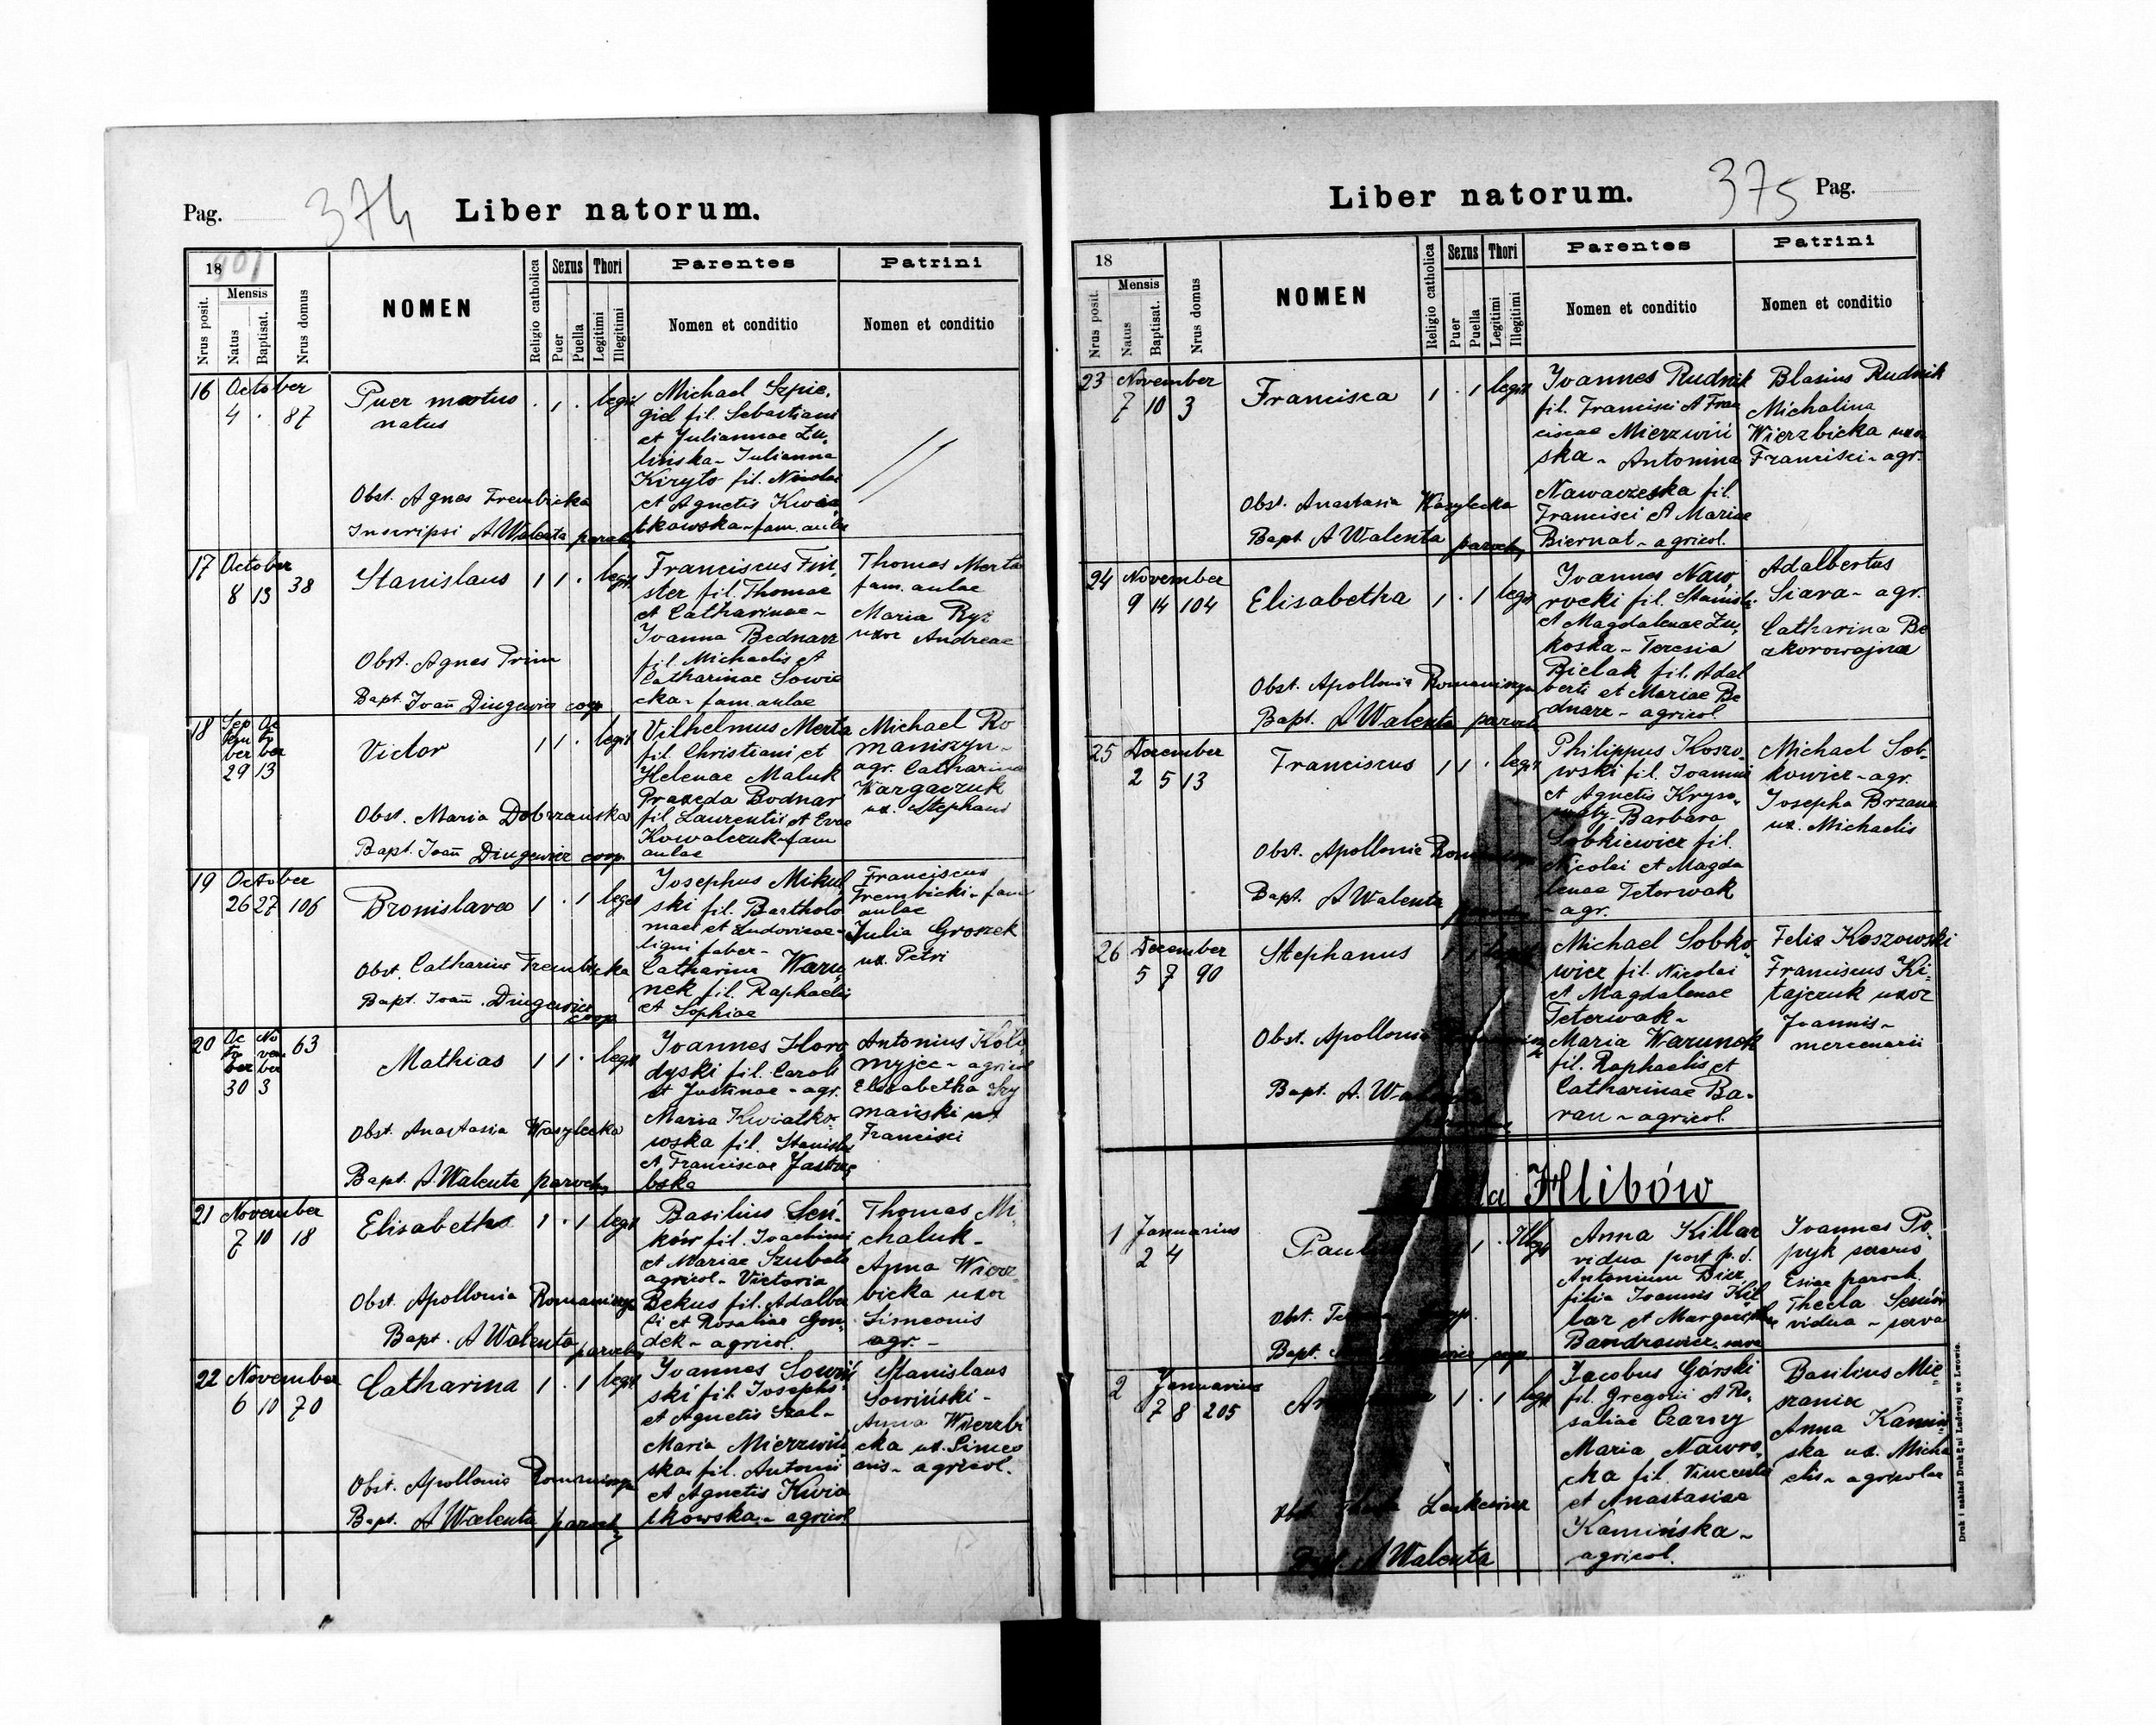 Pag.
374
Liber natorum.
18 901
Nrus posit.
Mensis
Natus
Baptisat.
Nrus domus
NOMEN
Religio catholica
Sexus
Puer
Puella
Thori
Legitimi
Illegitimi
Parentes
Nomen et conditio
Patrini
Nomen et conditio
16 October
4 . 87
Puer mortuo
natus
. 1 . legit
Obst. Agnes Trembicka
Inscripsi A Walenta paroch
Michael Szpie,
giel fil. Sebastiani
et Juliannae Zu,
lińska - Julianna
Kiryto fil. Nicolai
et Agnetis Kwia
tkowska - fam. aulae
17 October
8 13 38
Stanislaus
1 1 . legit
Obst. Agnes Prim
Bapt. Joan̄ Dziugiewicz coop
Franciscus Fin,
ster fil. Thomae
et Catharinae -
Joanna Bednarz
fil. Michaelis et
Catharinae Sowic
cka - fam. aulae
Thomas Merta
fam. aulae
Maria Ryż
uxor Andreae
18 Sep Oc
tem to
ber ber
29 13
Victor
1 1 . legit
Obst. Maria Dobrzańska
Bapt. Joan̄ Dziugiewicz coop.
Vilhelmus Merta
fil. Christiani et
Helenae Maluk
Praxeda Bodnar
fil. Laurentii et Evae
Kowalczuk - fam
aulae
Michael Ro
maniszyn -
agr. Catharina
Wargaczuk
ux. Stephani
19 October
26 27 106
Bronislava
1 . 1 legit
Obst. Catharina Trembicka
Bapt. Joan̄. Dziugiewicz
coop
Josephus Mikul,
ski fil. Bartholo
maei et Ludovicae -
ligni faber -
Catharina Waru,
nek fil. Raphaelis
et Sophiae
Franciscus
Trembicki - fam
aulae
Julia Groszek
ux. Petri
20 Oc No
to vem
ber ber
30 3
63
Mathias
1 1 . legit
Obst. Anastasia Wasylecka
Bapt. A. Walenta paroch
Joannes Horo
dyski fil. Caroli
et Justinae - agr.
Maria Kwiatko,
wska fil. Stanislai
et Franciscae Jastrzę
bska
Antonius Koło
myjec - agricol
Elisabetha Szy
mański ux
Francisci
21 November
7 10 18
Elisabetha
1 . 1 legit
Obst. Apollonia Romaniszyn
Bapt. A Walenta paroch
Basilius Seń,
ków fil. Joachimi
et Mariae Szubata
agricol - Victoria
Bekus fil. Adalber
ti et Rosaliae Gon,
dek - agricol.
Thomas Mi,
chaluk -
Anna Wierz
bicka uxor
Simeonis
agr. -
22 November
6 10 70
Catharina
1 . 1 legit
Obst. Apollonia Romaniszyn
Bapt. A Walenta paroch
Joannes Sowiń
ski fil. Josephi
et Agnetis Szal -
Maria Mierzwiń
ska fil. Antonii
et Agnetis Kwia
tkowska - agricol
Stanislaus
Sowiński -
Anna Wierzbi
cka ux. Simeo
nis - agricol.
Liber natorum.
375
Pag.
18
Nrus posit.
Mensis
Natus
Baptisat.
Nrus domus
NOMEN
Religio catholica
Sexus
Puer
Puella
Thori
Legitimi
Illegitimi
Parentes
Nomen et conditio
Patrini
Nomen et conditio
23 November
7 10 3
Francisca
1 . 1 legit
Obst. Anastasia Wasylecka
Bapt A Walenta paroch
Joannes Rudnik
fil. Francisci et Fran
ciscae Mierzwiń
ska - Antonina
Nawaczeska fil.
Francisci et Mariae
Biernat - agricol.
Blasius Rudnik
Michalina
Wierzbicka uxor
Francisci - agr.
24 November
9 14 104
Elisabetha
1 . 1 legit
Obst. Apollonia Romaniszyn
Bapt. A Walenta paroch
Joannes Naw,
rocki fil. Stanisl.
et Magdalenae Zu,
koska - Teresia
Bielak fil. Adal
berti et Mariae Be
dnarz - agricol.
Adalbertus
Siara - agr.
Catharina Be
zkorowajna
25 December
2 5 13
Franciscus
1 1 . legit
Obst. Apollonia
Bapt. A Walenta
Philippus Koszo,
wski fil. Joannis
et Agnetis
Barbara
Sobkiewicz fil.
Nicolai et Magda
lenae Teterwak
- agr.
Michael Sob,
kowicz - agr.
Josepha Brzana
ux. Michaelis
26 December
5 7 90
Stephanus
Obst. Apollonia
Bapt. A. Walenta
Michael Sobko,
wicz fil. Nicolai
et Magdalenae
Teterwak -
Maria Warunek
fil. Raphaelis et
Catharinae Ba,
ran - agricol.
Felix Koszowski
Franciscus Ki,
tajczuk uxor
Joannis -
mercenarii
Hlibów
1 Januarius
2 4
1 . Illegit
Obst.
Bapt.
Anna Killar
vidua post p. d.
Antonium Bier,
filia Joannis Kil
lar et Margarethae
Bandrowicz
Joannes Po,
pyk servus
paroch.
Thecla Seniów
vidua - serva
2 Januarius
7 8 205
1 . 1 legit
Obst.
Bapt. A Walenta
Jacobus Górski
fil. Gregorii et Ro,
saliae Czarny
Maria Nawro,
cka fil. Vincentii
et Anastasiae
Kamińska -
agricol.
Basilius Mie,
szanin
Anna Kamiń
ska ux. Micha
elis - agricolae
Druk i nakład Drukarni Ludowej we Lwowie.